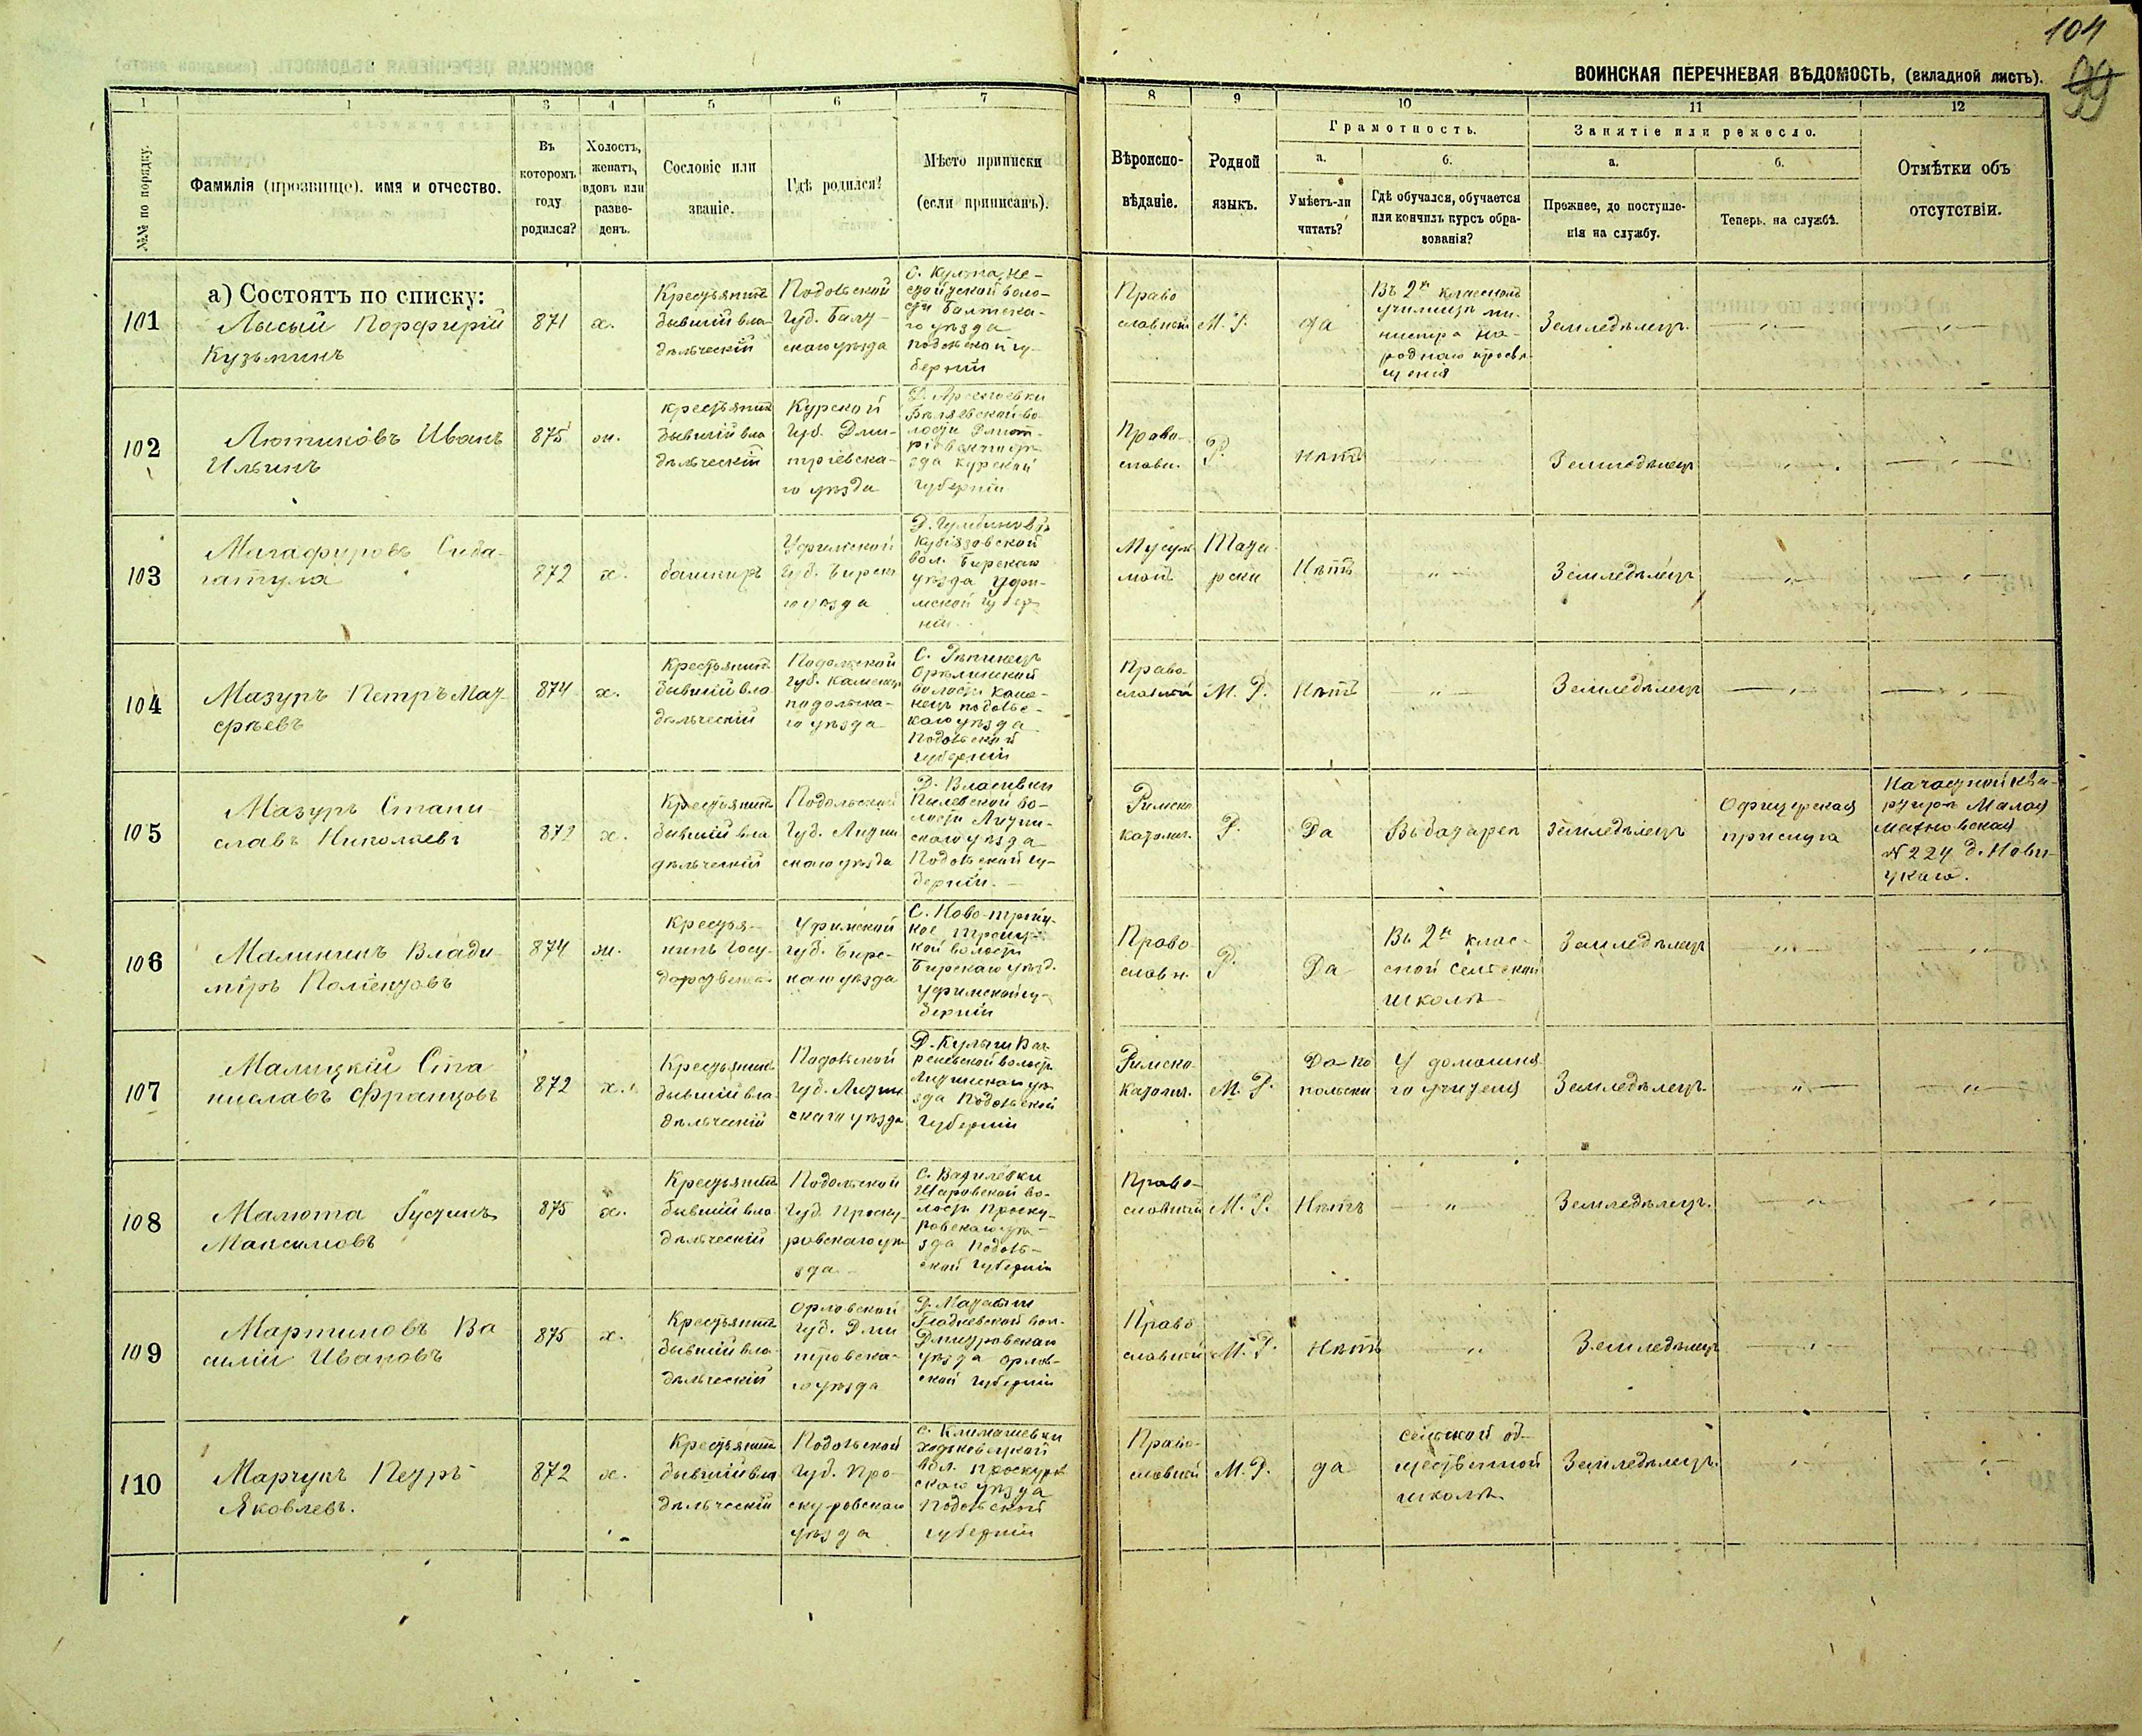 104
99
ВОИНСКАЯ ПЕРЕЧНЕВАЯ ВѢДОМОСТЬ, (вкладной листъ).
1 1 3 4 5 6 7 8 9 10 11 12
№№ по порядку.
Фамилія (прозвище), имя и отчество.
Въ
которомъ
году
родился?
Холостъ,
женатъ,
вдовъ или
разве-
денъ.
Сословіе или
званіе.
Гдѣ родился?
Мѣсто приписки
(если приписанъ).
Вѣроиспо-
вѣданіе.
Родной
языкъ.
Грамотность.
а.
Умѣетъ-ли
читать?
б.
Гдѣ обучался, обучается
или кончилъ курсъ обра-
зованія?
Занятіе или ремесло.
а.
Прежнее, до поступле-
нія на службу.
б.
Теперь, на службѣ.
Отмѣтки объ
отсутствіи.
а) Состоятъ по списку:
101
Лысый Порфирій
Кузьминъ
871
х.
Крестьянинъ
бывшій вла-
дѣльческій
Подольской
Губ. Балт-
скаго уѣзда
Балтска-
го уѣзда
Подольской гу-
берніи
Право
славной
М. Р.
да
Въ 2х классномъ
училищѣ ми-
нистра на-
роднаго просвѣ-
щенія
Земледѣлецъ
102
Лютиковъ Иванъ
Ильинъ
875
ж.
крестьянинъ
бывшій вла
дѣльческій
Курской
Губ. Дми-
тріевска-
го уѣзда
уѣ-
зда Курской
Губерніи
Право-
славн.
Р.
Нѣтъ
Земледѣлецъ
103
Магафуровъ Сиба-
гатула
872
х.
башкиръ
Уфимской
Губ. Бирска
го уѣзда
вол. Бирскаго
уѣзда Уфи-
мской губер
ніи
Мусуль
ман.
Тата-
рски
Нѣтъ
Земледѣлецъ
104
Мазуръ Петръ Мат-
фѣевъ
874
х.
Крестьянинъ
бывшій вла
дѣльческій
Подольской
губ. Каменец
подольска-
го уѣзда
С. Рѣпинецъ
волости Каме-
нецъ подоль-
скаго уѣзда
Подольской
губерніи
Право
славной
М. Р.
Нѣтъ
Земледѣлецъ
105
Мазуръ Стани
славъ Николаевъ
872
х.
Крестьянинъ
бывшій вла
дѣльческій
Подольской
Губ. Литин
скаго уѣзда
Д. Власивки
Пилявской во-
лости Литин-
скаго уѣзда
Подольской гу-
берніи
Римско
католич.
Р.
Да
Въ батареи
Земледѣлецъ
Офицерская
прислуга
На частной ква-
ртирѣ Малая
Махновская
№ 224 д. Нови-
цкаго.
106
Малининъ Влади
міръ Поліенцовъ
874
ж.
Крестья-
нинъ Госу-
дарственн.
Уфимской
губ. Бирс-
каго уѣзда
С. Ново-троиц-
кое Троицс-
кой волости
Бирскаго уѣзд.
Уфимской гу-
берніи
Право
славн.
Р.
Да
Въ 2х клас-
сной сельской
школѣ
Земледѣлецъ
107
Малицкій Ста
ниславъ Францовъ
872
х.
Крестьянинъ
бывшій вла
дѣльческій
Подольской
губ. Литин
скаго уѣзда
Литинскаго уѣ
зда Подольской
Губерніи
Римско
Католич.
М. Р.
Да по
польски
У домашня
го учителя
Земледѣлецъ
108
Малюта Густинъ
Максимовъ
875
х.
Крестьянинъ
бывшій вла
дѣльческій
Подольской
Губ. Проску-
ровскаго уѣ
зда
С. Василевки
Шаровской во-
лости Проску-
ровскаго уѣ-
зда Подоль-
ской Губерніи
Право-
славной
М. Р.
Нѣтъ
Земледѣлецъ.
109
Мартиновъ Ва
силій Ивановъ
875
х.
Крестьянинъ
бывшій вла
дѣльческій
Орловской
губ. Дми
тровска-
го уѣзда
Дмитровскаго
уѣзда Орлов-
ской Губерніи
Право
славной
М. Р.
Нѣтъ
Земледѣлецъ
110
Марчукъ Петръ
Яковлевъ.
872
х.
Крестьянинъ
бывшій вла
дѣльческій
Подольской
губ. Про-
скуровскаго
уѣзда
С. Климашевки
вол. Проскуров
скаго уѣзда
Подольской
губерніи
Право-
славной
М. Р.
да
сельской об-
щественной
школѣ
Земледѣлецъ.